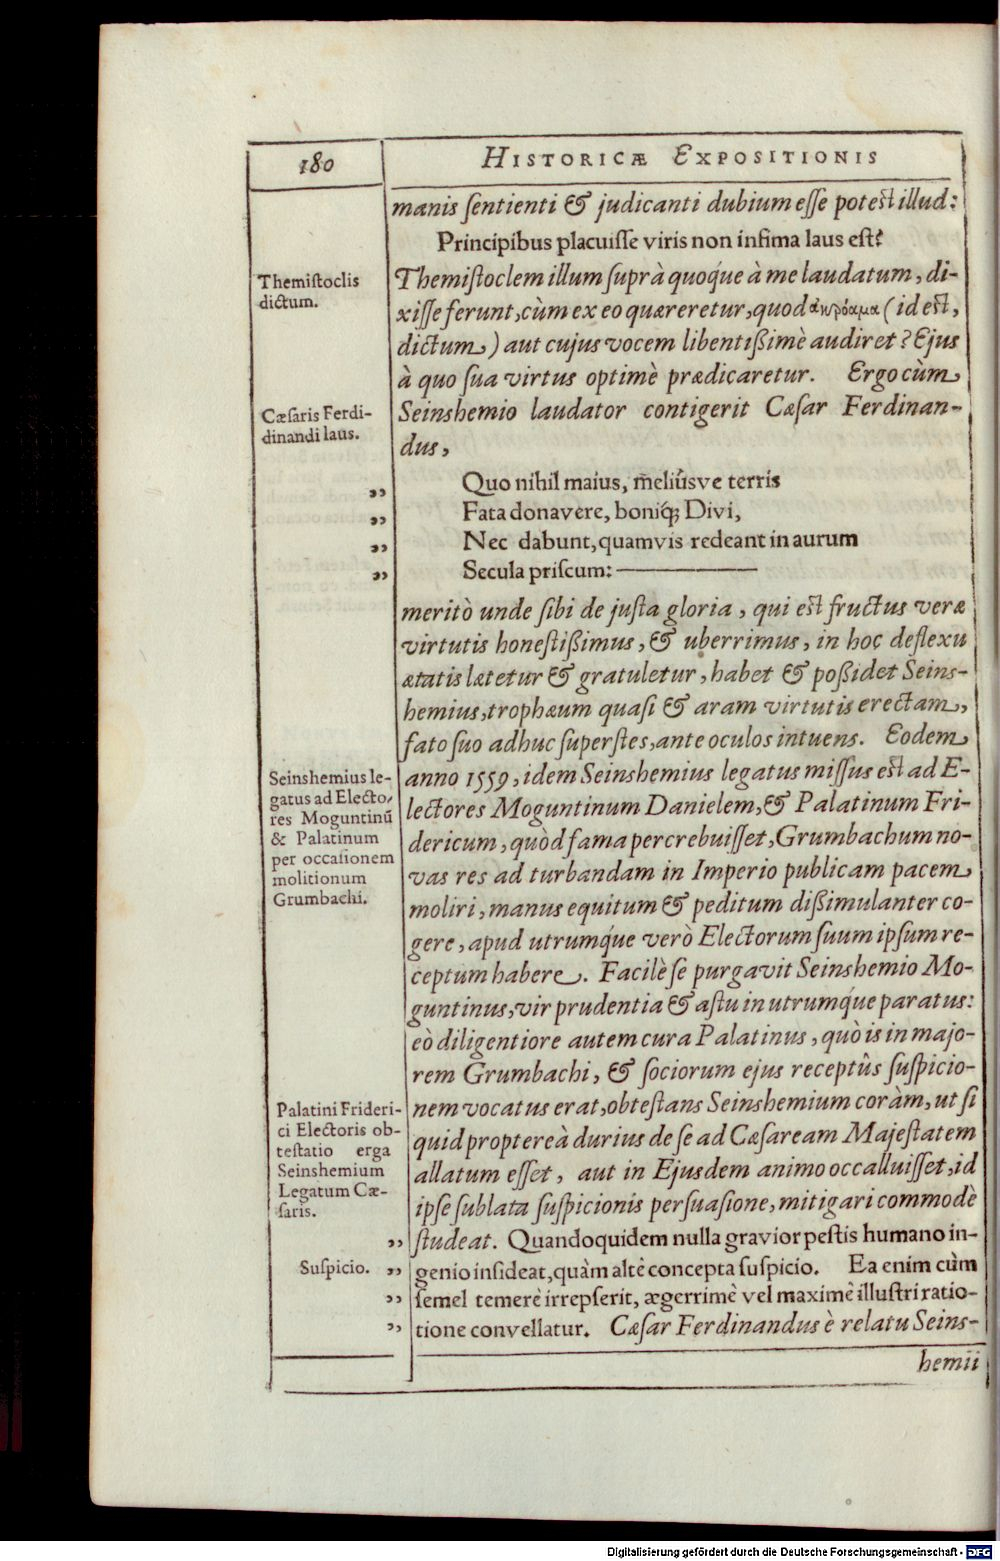 180
HISTORICÆ EXPOSITIONIS
manis ſentienti & judicanti dubium eſſe poteſt illud:
Principibus placuiſſe viris non infima laus eſt?
Themiſtoclis
dictum.
Themiſtoclem illum ſuprà quoq́ue à me laudatum, di-
xiſſe ferunt, cùm ex eo quæreretur, quod ἀκρόαμα (id eſt,
dictum) aut cujus vocem libentißimè audiret? Ejus
à quo ſua virtus optimè prædicaretur. Ergo cùm
Cæſaris Ferdi-
dinandi laus.
Seinshemio laudator contigerit Cæſar Ferdinan-
dus,
„ Quo nihil maius, meliúsve terris
„ Fata donavere, boniq́; Divi,
„ Nec dabunt, quamvis redeant in aurum
„ Secula priſcum: ———
meritò unde ſibi de juſta gloria, qui eſt fructus veræ
virtutis honeſtißimus, & uberrimus, in hoc deflexu
ætatis lætetur & gratuletur, habet & poßidet Seins-
hemius, trophæum quaſi & aram virtutis erectam,
fato ſuo adhuc ſuperſtes, ante oculos intuens. Eodem
Seinshemius le-
gatus ad Electo-
res Moguntinū
& Palatinum
per occaſionem
molitionum
Grumbachi.
anno 1559, idem Seinshemius legatus miſſus eſt ad E-
lectores Moguntinum Danielem, & Palatinum Fri-
dericum, quòd fama percrebuiſſet, Grumbachum no-
vas res ad turbandam in Imperio publicam pacem
moliri, manus equitum & peditum dißimulanter co-
gere, apud utrumq́ue verò Electorum ſuum ipſum re-
ceptum habere. Facilè ſe purgavit Seinshemio Mo-
guntinus, vir prudentia & aſtu in utrumq́ue paratus:
eò diligentiore autem cura Palatinus, quò is in majo-
rem Grumbachi, & ſociorum ejus receptûs ſuſpicio-
Palatini Frideri-
ci Electoris ob-
teſtatio erga
Seinshemium
Legatum Cæ-
ſaris.
nem vocatus erat, obteſtans Seinshemium coràm, ut ſi
quid proptereà durius de ſe ad Cæſaream Majeſtatem
allatum eſſet, aut in Ejusdem animo occalluiſſet, id
ipſe ſublata ſuſpicionis perſuaſione, mitigari commodè
„ ſtudeat. Quandoquidem nulla gravior peſtis humano in-
Suſpicio. „ genio inſideat, quàm altè concepta ſuſpicio. Ea enim cùm
„ ſemel temerè irrepſerit, ægerrimè vel maximè illuſtri ratio-
„ tione convellatur. Cæſar Ferdinandus è relatu Seins-
hemii
Digitalisierung gefördert durch die Deutsche Forschungsgemeinschaft - DFG